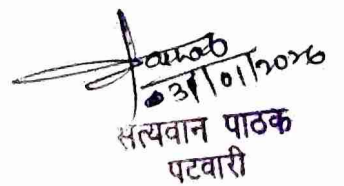 31/01/2026
सत्यवान पाठक
पटवारी